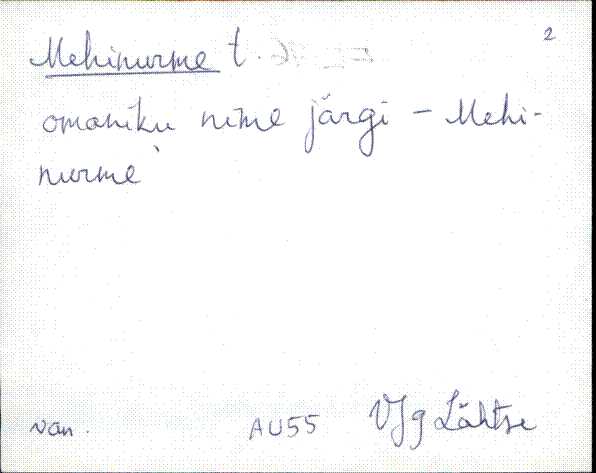 2
Mehinurme t.
omaniku nime järgi – Mehi-
nurme
van. AU55 VJg Lähtse